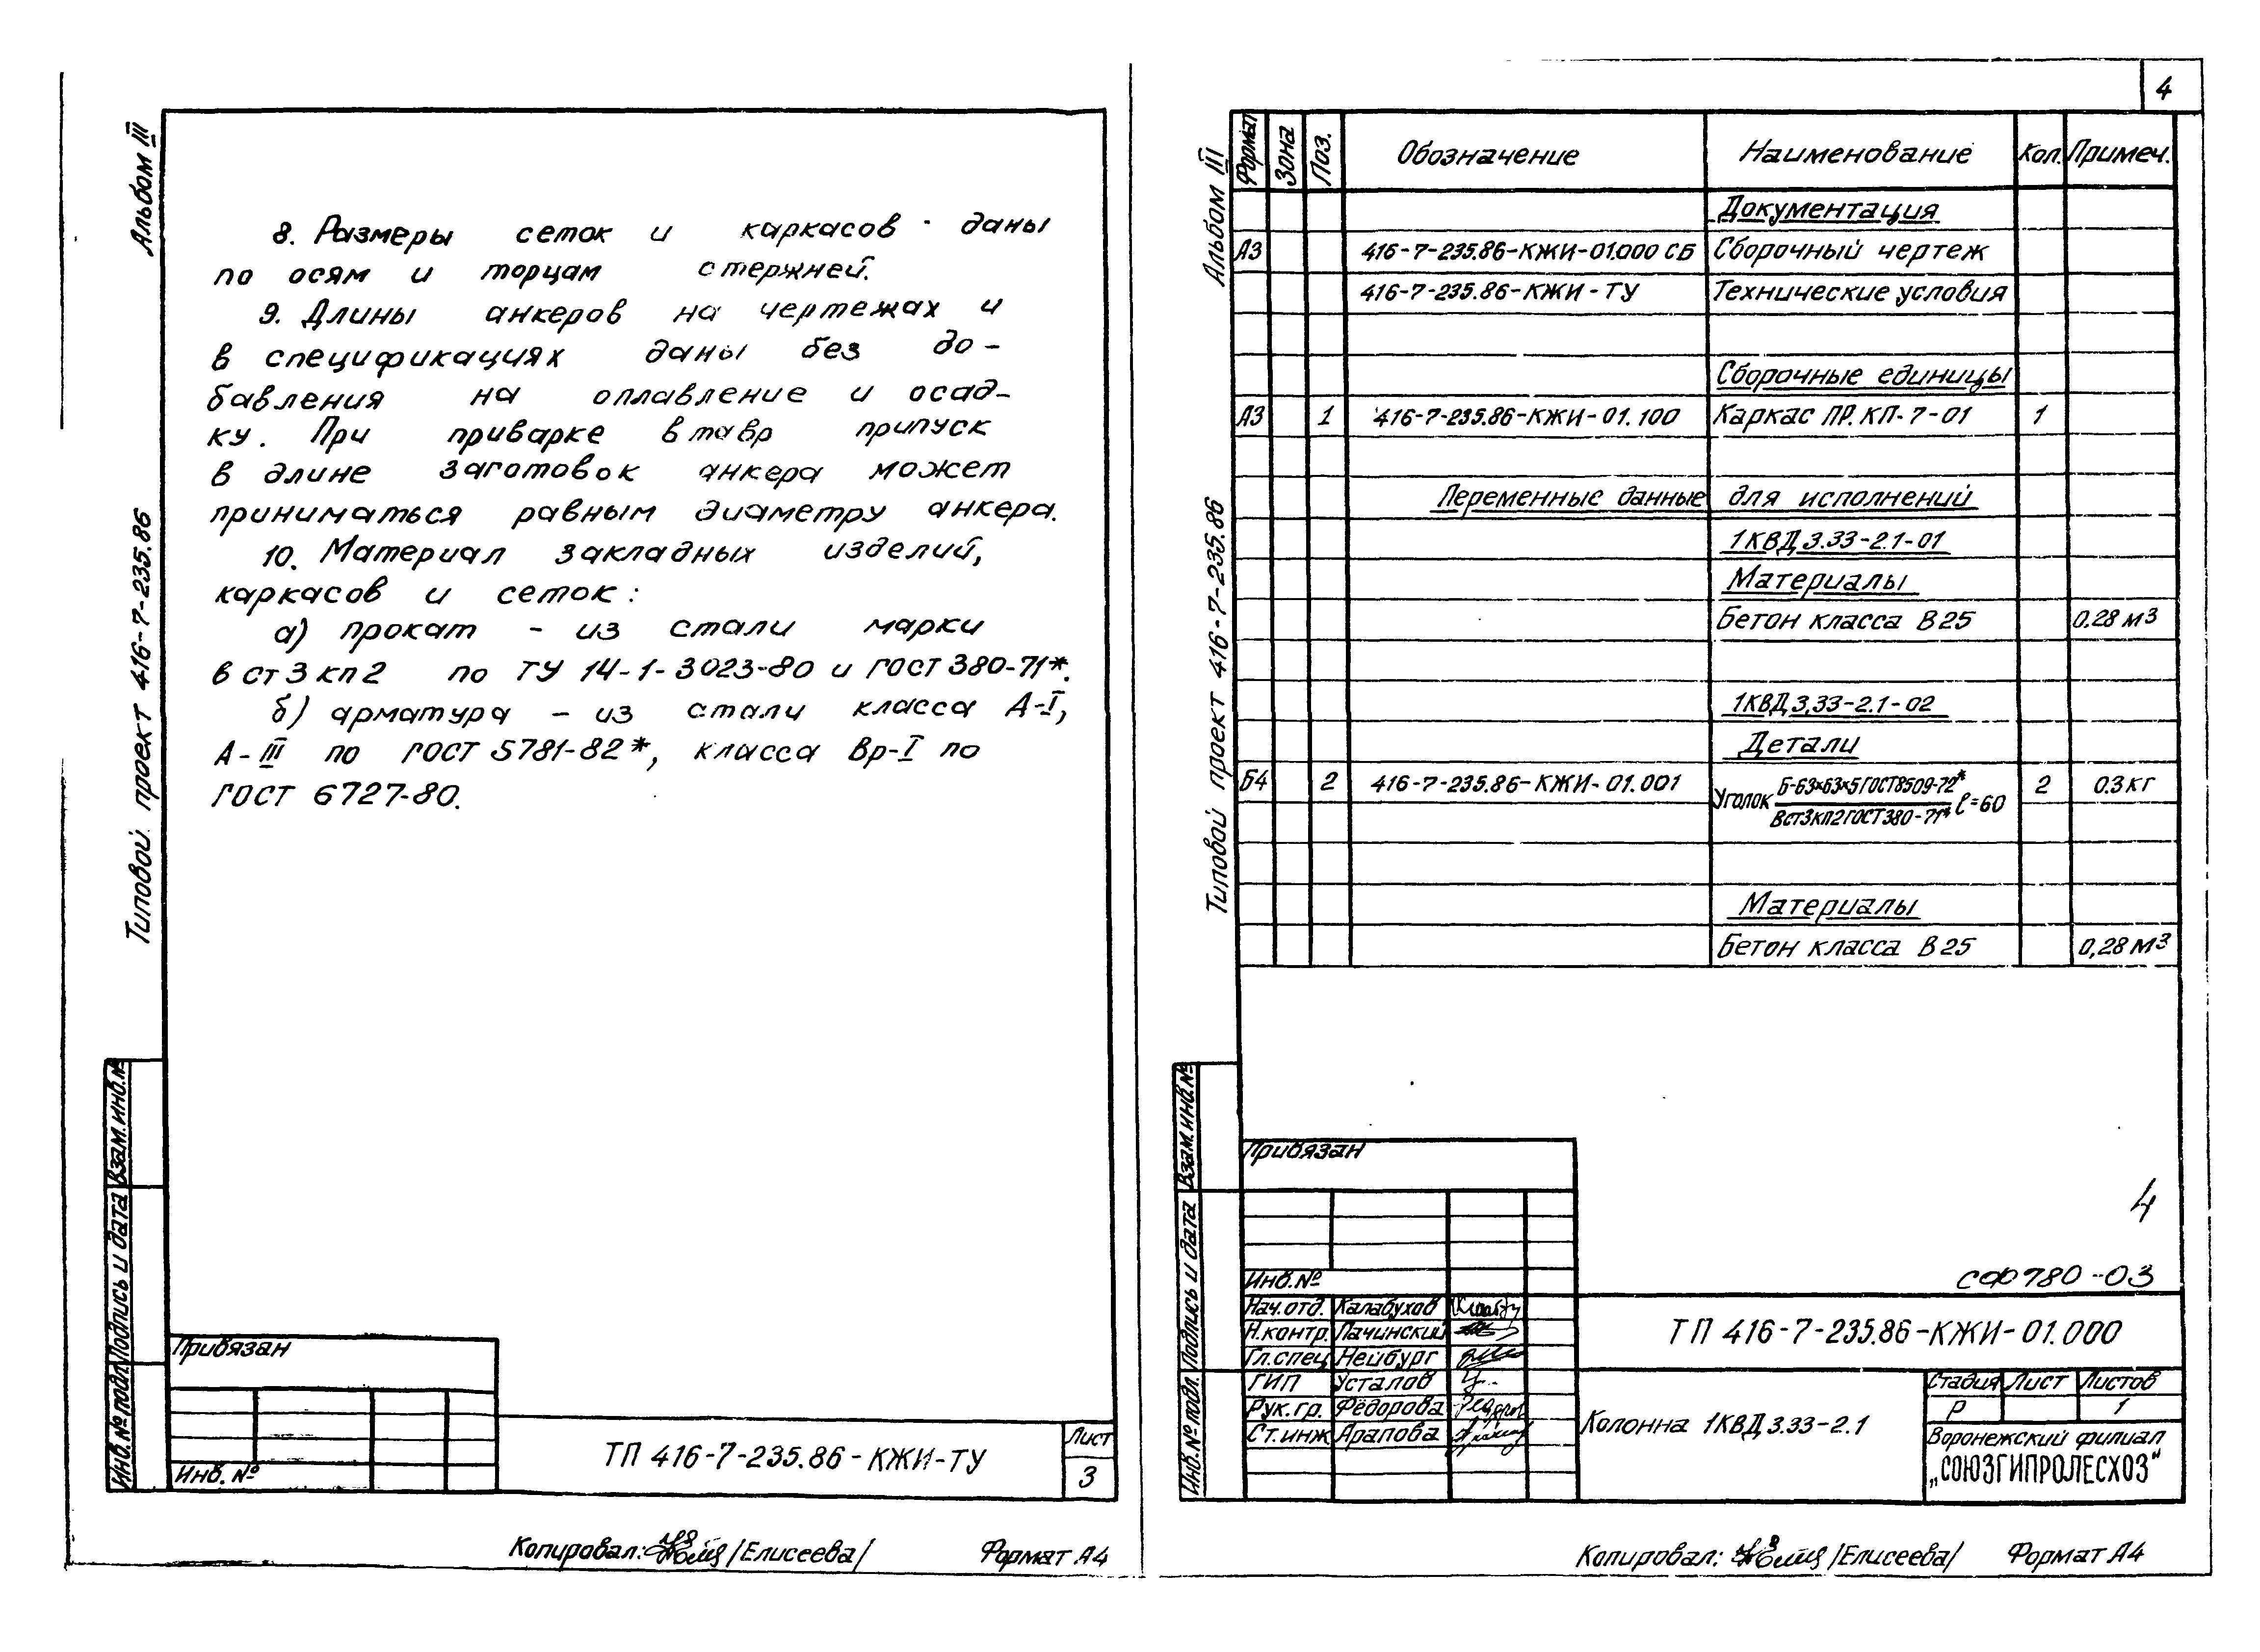 Альбом III
Типовой проект 416-7-235.86
8. Размеры сеток и каркасов даны
по осям и торцам стержней.
9. Длины анкеров на чертежах и
в спецификациях даны без до-
бавления на оплавление и осад-
ку. При приварке в тавр припуск
в длине заготовок анкера может
приниматься равным диаметру анкера.
10. Материал закладных изделий,
каркасов и сеток:
а) прокат - из стали марки
в ст 3 кп 2 по ТУ 14-1-3023-80 и ГОСТ 380-71*.
б) арматура - из стали класса А-I,
А-III по ГОСТ 5781-82*, класса Вр-I по
ГОСТ 6727-80.
Взам.инв.№
Подпись и дата
Инв.№ подл.
Привязан
Инв. №
ТП 416-7-235.86-КЖИ-ТУ
Лист
3
Копировал: /Елисеева/ Формат А4
4
Альбом III
Типовой проект 416-7-235.86
Формат Зона Поз. Обозначение Наименование Кол. Примеч.
Документация
А3 416-7-235.86-КЖИ-01.000 СБ Сборочный чертеж
416-7-235.86-КЖИ-ТУ Технические условия
Сборочные единицы
А3 1 416-7-235.86-КЖИ-01.100 Каркас ПР.КП-7-01 1
Переменные данные для исполнений
1КВД 3.33-2.1-01
Материалы
Бетон класса В25 0.28 м3
1КВД 3.33-2.1-02
Детали
Б4 2 416-7-235.86-КЖИ-01.001 Уголок Б-63х63х5 ГОСТ 8509-72* l=60 2 0.3 кг
Вст3кп2 ГОСТ 380-71*
Материалы
Бетон класса В25 0,28 м3
Взам.инв.№
Подпись и дата
Инв.№ подл.
Привязан
Инв.№
4
СФ 780-03
Нач.отд. Калабухов
Н.контр. Пачинский
Гл.спец Нейбург
ГИП Усталов
Рук.гр. Фёдорова
Ст.инж Арапова
ТП 416-7-235.86-КЖИ-01.000
Колонна 1КВД 3.33-2.1
Стадия Лист Листов
Р 1
Воронежский филиал
„СОЮЗГИПРОЛЕСХОЗ"
Копировал: /Елисеева/ Формат А4